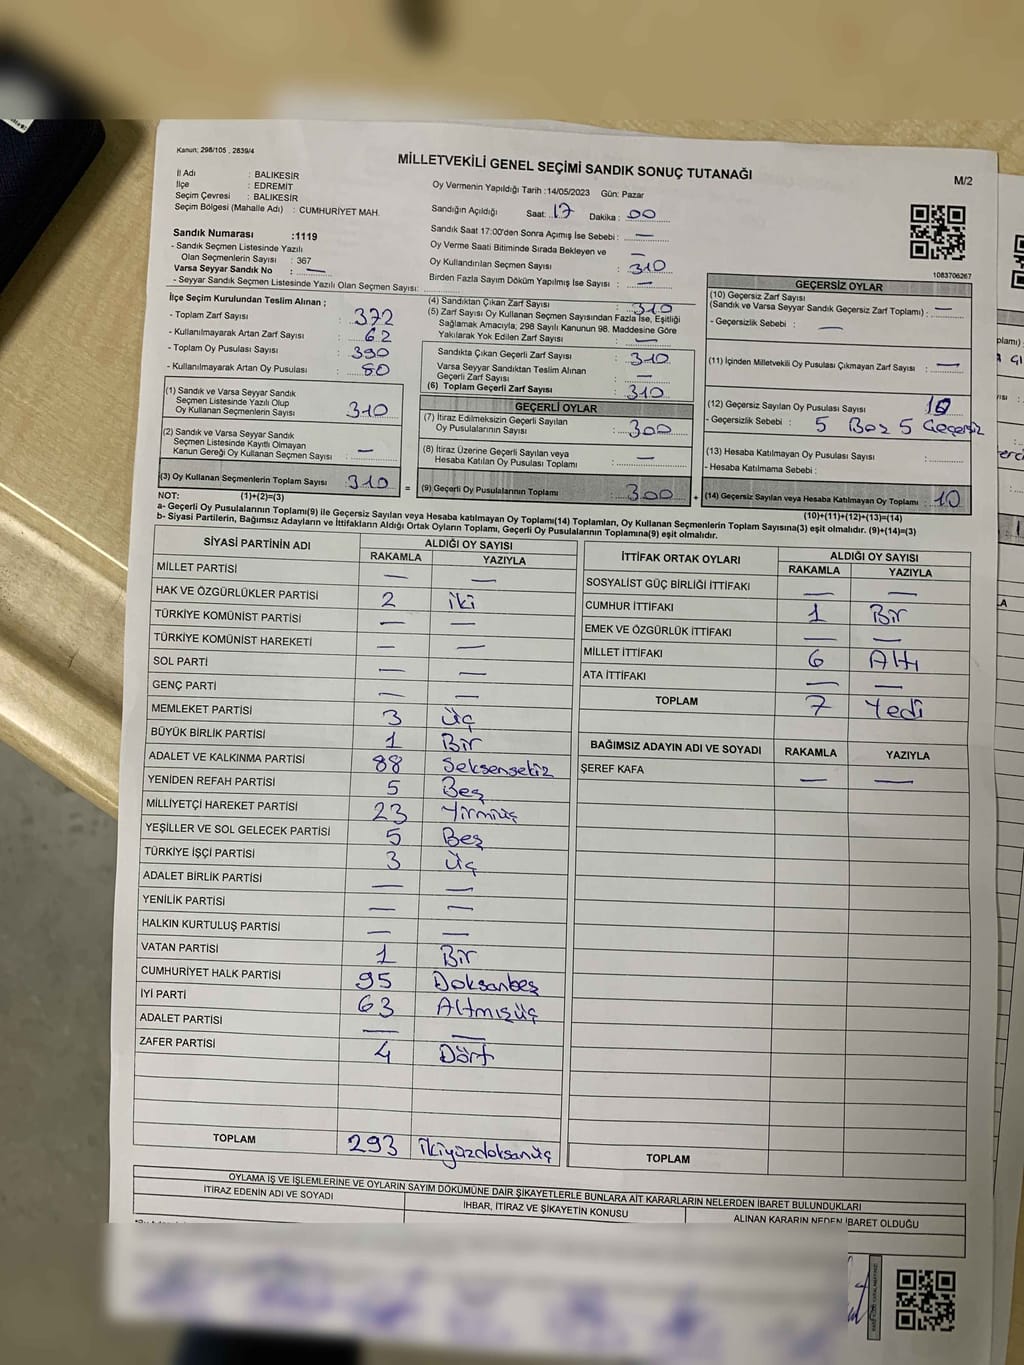 Kanun: 298/105 , 2839/4
MİLLETVEKİLİ GENEL SEÇİMİ SANDIK SONUÇ TUTANAĞI
M/2
İl Adı : BALIKESİR
İlçe : EDREMİT
Seçim Çevresi : BALIKESİR
Seçim Bölgesi (Mahalle Adı) : CUMHURİYET MAH.
Sandık Numarası :1119
- Sandık Seçmen Listesinde Yazılı
Olan Seçmenlerin Sayısı : 367
Varsa Seyyar Sandık No : —
- Seyyar Sandık Seçmen Listesinde Yazılı Olan Seçmen Sayısı:
Oy Vermenin Yapıldığı Tarih :14/05/2023 Gün: Pazar
Sandığın Açıldığı Saat: 17 Dakika : 00
Sandık Saat 17:00'den Sonra Açımış İse Sebebi : —
Oy Verme Saati Bitiminde Sırada Bekleyen ve —
Oy Kullandırılan Seçmen Sayısı : 310
Birden Fazla Sayım Döküm Yapılmış İse Sayısı : —
1083706267
İlçe Seçim Kurulundan Teslim Alınan ;
- Toplam Zarf Sayısı : 372
- Kullanılmayarak Artan Zarf Sayısı : 62
- Toplam Oy Pusulası Sayısı : 390
- Kullanılmayarak Artan Oy Pusulası : 80
(1) Sandık ve Varsa Seyyar Sandık
Seçmen Listesinde Yazılı Olup
Oy Kullanan Seçmenlerin Sayısı : 310
(2) Sandık ve Varsa Seyyar Sandık
Seçmen Listesinde Kayıtlı Olmayan
Kanun Gereği Oy Kullanan Seçmen Sayısı : —
(3) Oy Kullanan Seçmenlerin Toplam Sayısı : 310
(4) Sandıktan Çıkan Zarf Sayısı : 310
(5) Zarf Sayısı Oy Kullanan Seçmen Sayısından Fazla İse, Eşitliği
Sağlamak Amacıyla; 298 Sayılı Kanunun 98. Maddesine Göre
Yakılarak Yok Edilen Zarf Sayısı : —
Sandıkta Çıkan Geçerli Zarf Sayısı : 310
Varsa Seyyar Sandıktan Teslim Alınan
Geçerli Zarf Sayısı : —
(6) Toplam Geçerli Zarf Sayısı : 310
GEÇERLİ OYLAR
(7) İtiraz Edilmeksizin Geçerli Sayılan
Oy Pusulalarının Sayısı : 300
(8) İtiraz Üzerine Geçerli Sayılan veya
Hesaba Katılan Oy Pusulası Toplamı : —
= (9) Geçerli Oy Pusulalarının Toplamı : 300 +
GEÇERSİZ OYLAR
(10) Geçersiz Zarf Sayısı
(Sandık ve Varsa Seyyar Sandık Geçersiz Zarf Toplamı) : —
- Geçersizlik Sebebi : —
(11) İçinden Milletvekili Oy Pusulası Çıkmayan Zarf Sayısı : —
(12) Geçersiz Sayılan Oy Pusulası Sayısı : 10
- Geçersizlik Sebebi : 5 Boş 5 Geçersiz
(13) Hesaba Katılmayan Oy Pusulası Sayısı :
- Hesaba Katılmama Sebebi :
(14) Geçersiz Sayılan veya Hesaba Katılmayan Oy Toplamı : 10
NOT: (1)+(2)=(3)
(10)+(11)+(12)+(13)=(14)
a- Geçerli Oy Pusulalarının Toplamı(9) ile Geçersiz Sayılan veya Hesaba katılmayan Oy Toplamı(14) Toplamları, Oy Kullanan Seçmenlerin Toplam Sayısına(3) eşit olmalıdır. (9)+(14)=(3)
b- Siyasi Partilerin, Bağımsız Adayların ve İttifakların Aldığı Ortak Oyların Toplamı, Geçerli Oy Pusulalarının Toplamına(9) eşit olmalıdır.
SİYASİ PARTİNİN ADI ALDIĞI OY SAYISI
RAKAMLA YAZIYLA
MİLLET PARTİSİ — —
HAK VE ÖZGÜRLÜKLER PARTİSİ 2 iki
TÜRKİYE KOMÜNİST PARTİSİ — —
TÜRKİYE KOMÜNİST HAREKETİ — —
SOL PARTİ — —
GENÇ PARTİ — —
MEMLEKET PARTİSİ 3 Üç
BÜYÜK BİRLİK PARTİSİ 1 Bir
ADALET VE KALKINMA PARTİSİ 88 Seksensekiz
YENİDEN REFAH PARTİSİ 5 Beş
MİLLİYETÇİ HAREKET PARTİSİ 23 Yirmiüç
YEŞİLLER VE SOL GELECEK PARTİSİ 5 Beş
TÜRKİYE İŞÇİ PARTİSİ 3 Üç
ADALET BİRLİK PARTİSİ — —
YENİLİK PARTİSİ — —
HALKIN KURTULUŞ PARTİSİ — —
VATAN PARTİSİ 1 Bir
CUMHURİYET HALK PARTİSİ 95 Doksanbeş
İYİ PARTİ 63 Altmışüç
ADALET PARTİSİ — —
ZAFER PARTİSİ 4 Dört
TOPLAM 293 ikiyüzdoksanüç
İTTİFAK ORTAK OYLARI ALDIĞI OY SAYISI
RAKAMLA YAZIYLA
SOSYALİST GÜÇ BİRLİĞİ İTTİFAKI — —
CUMHUR İTTİFAKI 1 Bir
EMEK VE ÖZGÜRLÜK İTTİFAKI — —
MİLLET İTTİFAKI 6 Altı
ATA İTTİFAKI — —
TOPLAM 7 Yedi
BAĞIMSIZ ADAYIN ADI VE SOYADI RAKAMLA YAZIYLA
ŞEREF KAFA — —
TOPLAM
OYLAMA İŞ VE İŞLEMLERİNE VE OYLARIN SAYIM DÖKÜMÜNE DAİR ŞİKAYETLERLE BUNLARA AİT KARARLARIN NELERDEN İBARET BULUNDUKLARI
İTİRAZ EDENİN ADI VE SOYADI
İHBAR, İTİRAZ VE ŞİKAYETİN KONUSU
ALINAN KARARIN NEDEN İBARET OLDUĞU